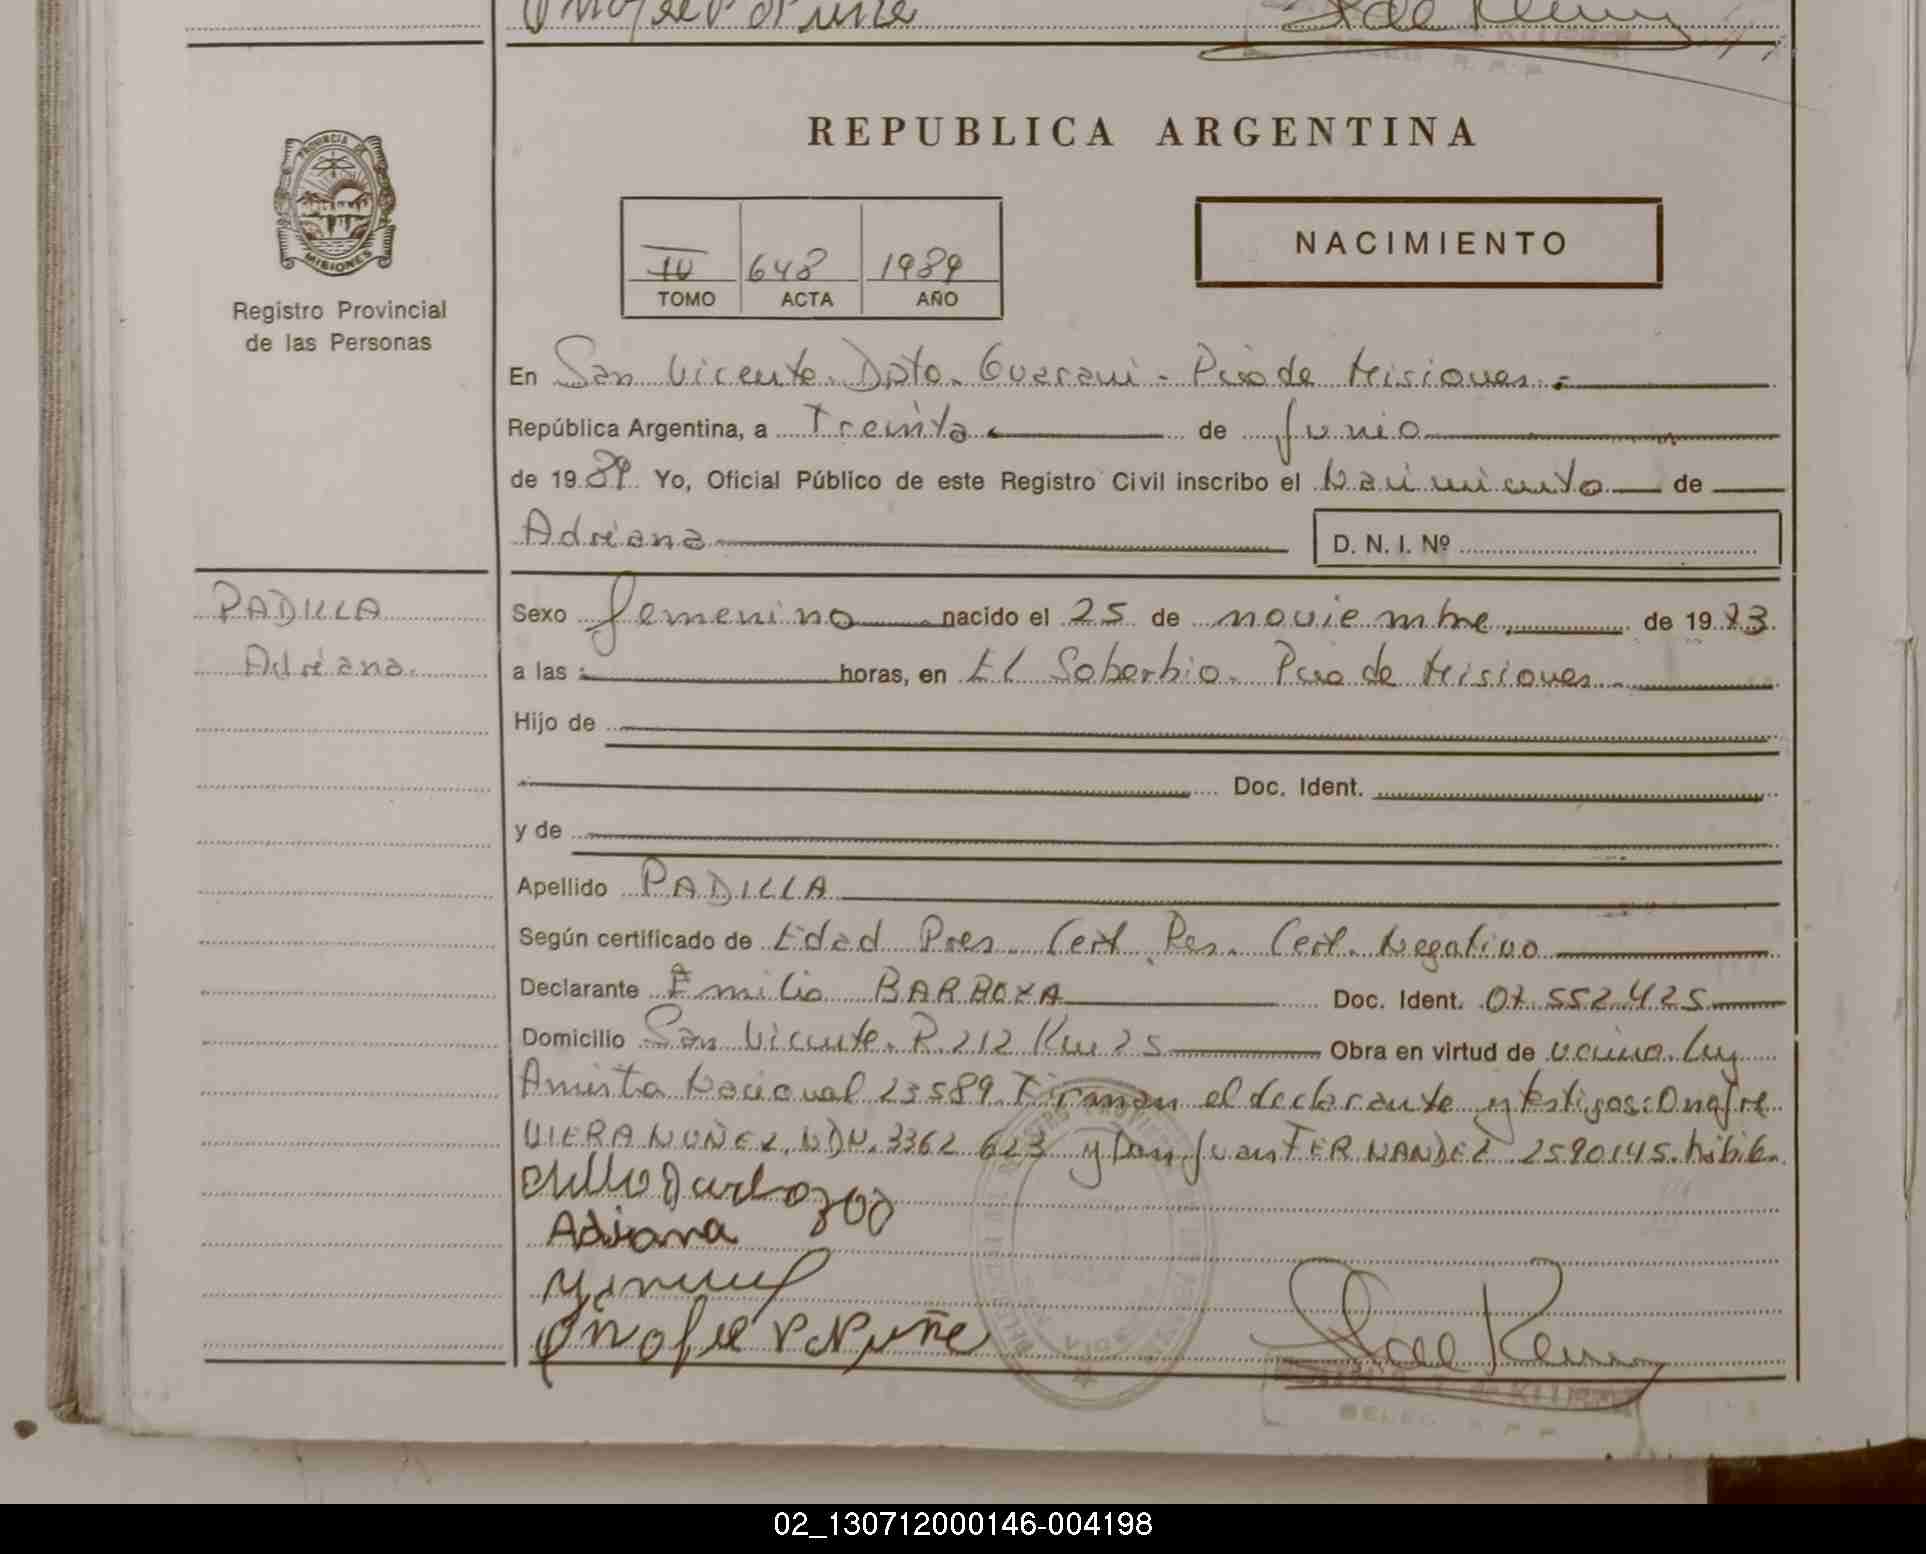 REPUBLICA ARGENTINA
PROVINCIA DE
MISIONES
Registro Provincial
de las Personas
648 1989
TOMO ACTA AÑO
NACIMIENTO
En San Vicente. Dpto. Guarani - Pcia de Misiones.-
República Argentina, a Treinta de Junio
de 1989 Yo, Oficial Público de este Registro Civil inscribo el Nacimiento de
Adriana D. N. I. Nº
PADILLA
Adriana.
Sexo femenino nacido el 25 de noviembre de 1973
a las horas, en El Soberbio. Pcia de Misiones.
Hijo de
Doc. Ident.
y de
Apellido PADILLA
Según certificado de Edad Pres. Cert. Res. Cert. Negativo
Declarante Emilio BARBOZA Doc. Ident. 07.552.425
Domicilio San Vicente. R. 212 Km 25 Obra en virtud de vecino. Ley
Amista Nacional 23589. Firman el declarante y testigos: Onofre
VIERA NUÑEZ. 3362 623 y Don Juan FERNANDEZ 2590145.
Adriana
Onofre V Nuñe
02_130712000146-004198